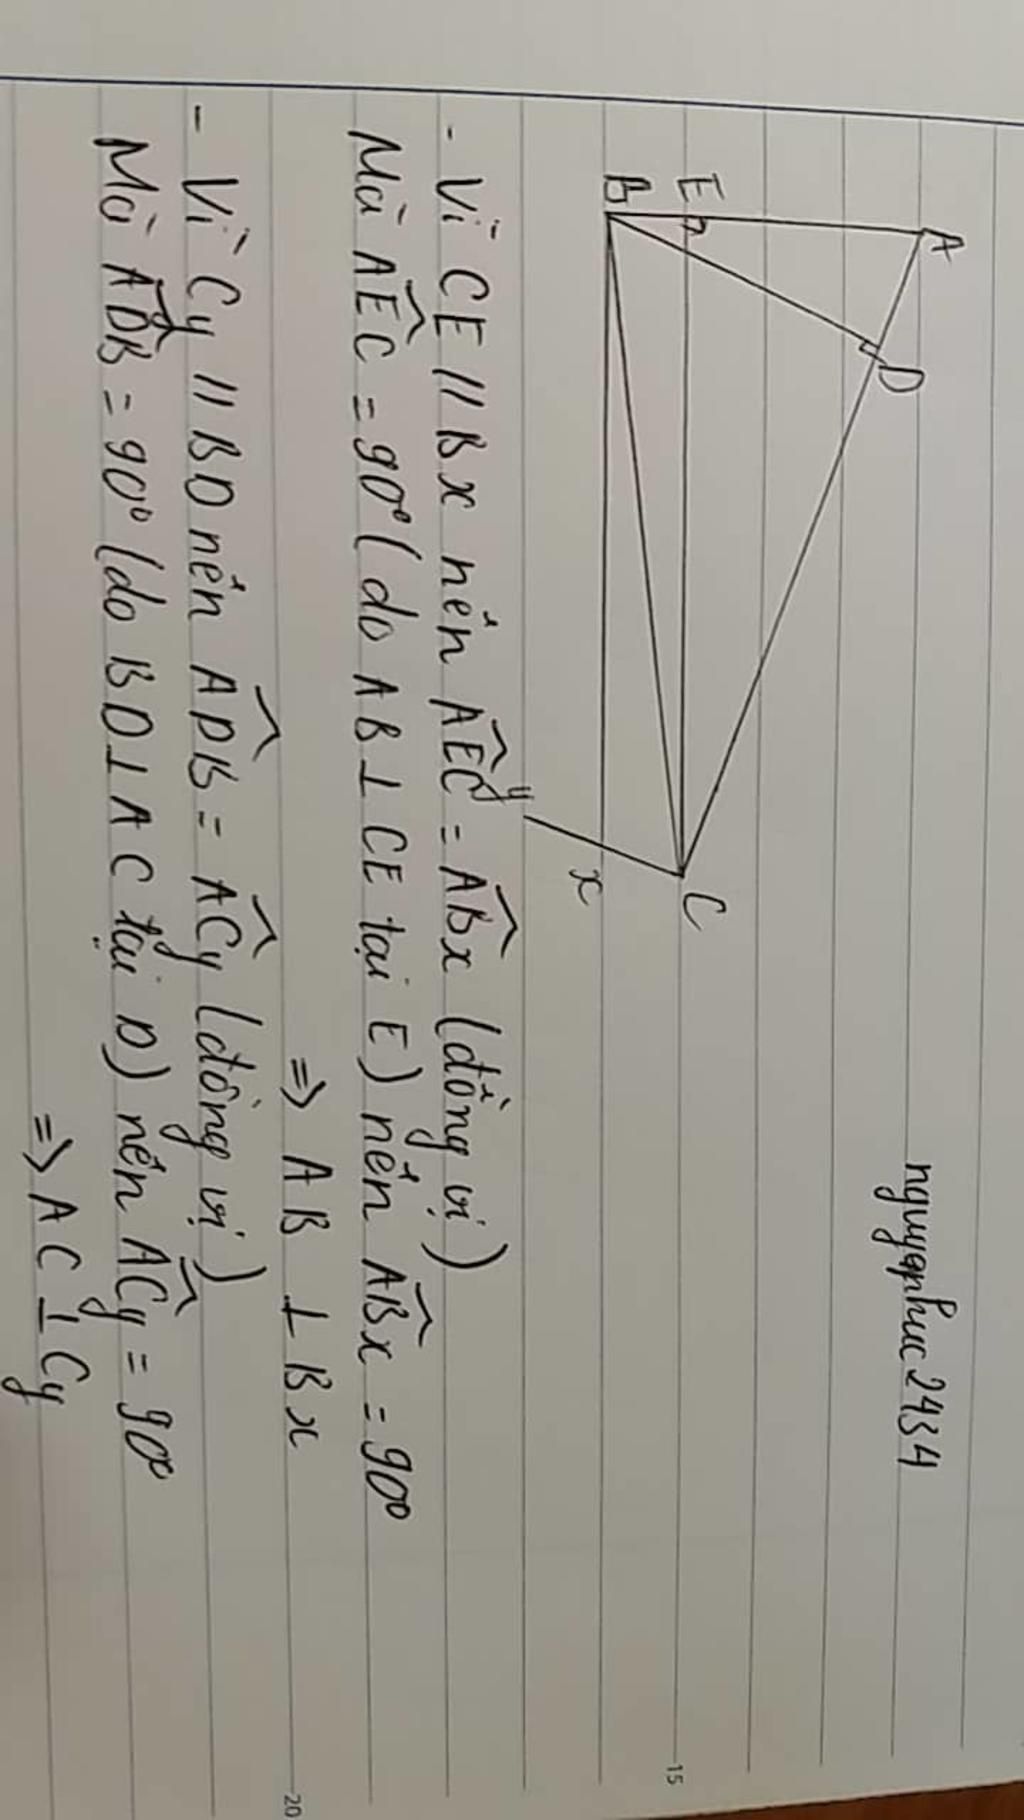 nguyenphuc2434
A
D
E
B
C
x
y
- Vì CE // Bx nên AEC = ABx (đồng vị)
Mà AEC = 90° (do AB ⊥ CE tại E) nên ABx = 90°
=> AB ⊥ Bx
- Vì Cy // BD nên ADB = ACy (đồng vị)
Mà ADB = 90° (do BD ⊥ AC tại D) nên ACy = 90°
=> AC ⊥ Cy
15
20